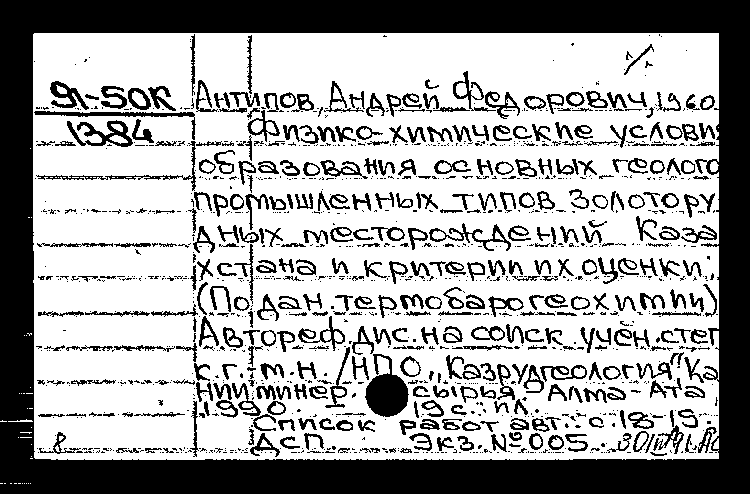 91-50К Антипов, Андрей Федорович, 1960
1384 Физико-химические услови
образования основных геолого
промышленных типов золотору
дных месторождений Каза
хстана и критерии их оценки:
(По дан. термобарогеохимии)
Автореф. дис. на соиск. учен. степ
к.г.-м.н. / НПО „Казрудгеология" Ка
НИИ минер. сырья. Алма-Ата
1990. 19 с.: ил.
Список работ авт.: с. 18-19.
8 ДСП. Экз. № 005.